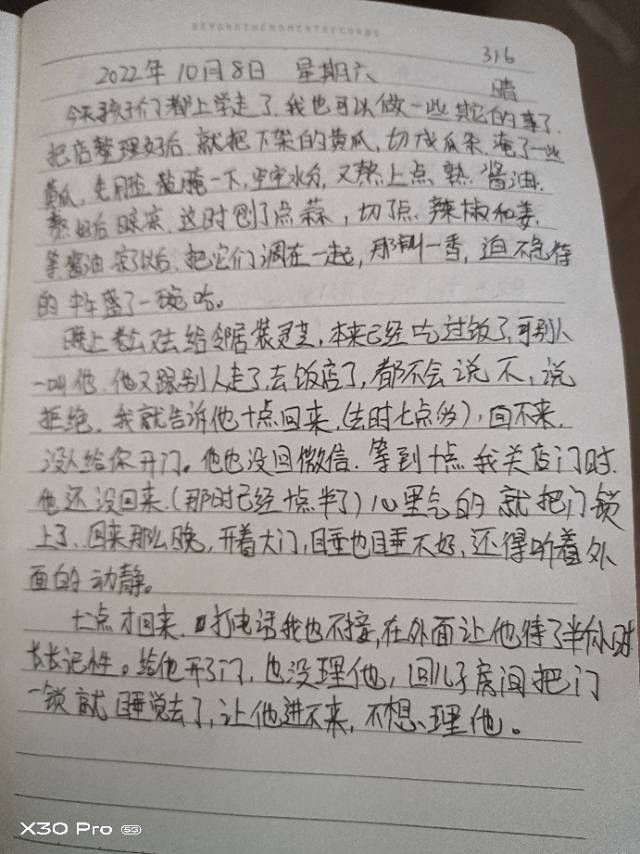 BEYONDTHEMOMENTRECORDS
316
2022年10月8日 星期六 晴
今天孩子们都上学走了,我也可以做一些其它的事了,
把店整理好后,就把下架的黄瓜,切成瓜条,淹了一些
黄瓜,先用盐腌一下,空空水分,又熬上点熟酱油,
熬好后晾凉,这时刨了点蒜,切了点辣椒和姜,
等酱油凉了以后,把它们调在一起,那叫一香,迫不急待
的 盛了一碗吃。
晚上老公又去给邻居装灵主,本来已经吃过饭了,可别人
一叫他,他又跟别人走了,去饭店了,都不会说不,说
拒绝。我就告诉他十点回来,(去时七点多),回不来,
没人给你开门。他也没回微信,等到十点我关店门时,
他还没回来,(那时已经十点半了)心里气的就把门锁
上了,回来那么晚,开着大门,睡也睡不好,还得听着外
面的动静。
十一点才回来,打电话我也不接,在外面让他待了半个小时
长长记性。给他开了门,也没理他,回儿子房间把门
一锁就睡觉去了,让他进不来,不想理他。
X30 Pro 5G